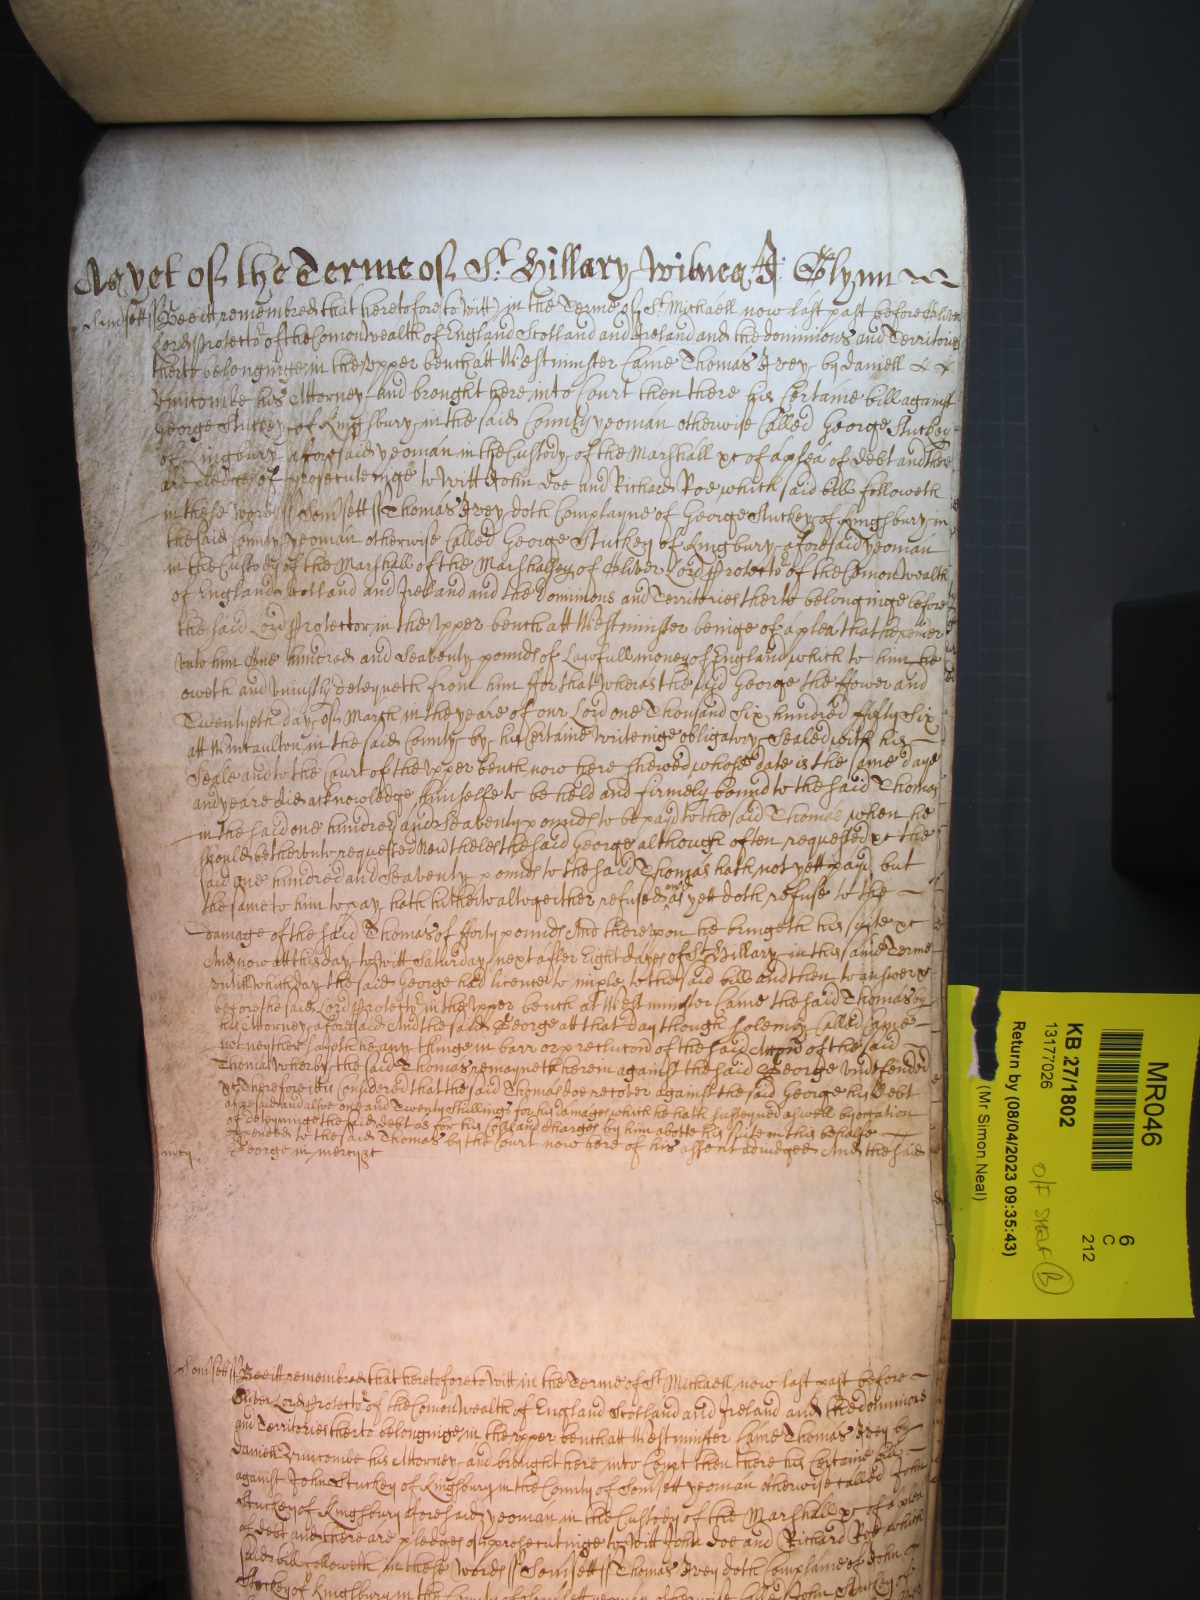 As yet of the Terme of St. Hillary Witnes J: Glynn
Somsett Bee itt remembred that heretofore to witt in the Terme of St. Michaell now last past before Oliver
Lord Protector of the Comonwealth of England Scotland and Ireland and the dominions and Territories
therto belonginge in the Upper bench att Westminster Came Thomas Ivey by Daniell
his Attorney and brought here into Court then there his Certaine bill against
George Stuckey of Kingsbury in the said County yeoman otherwise Called George Stuckey
of Kingsbury aforesaid yeoman in the Custody of the Marshall &c of a plea of Debt and there
are pledges of prosecuteinge to Witt John Doe and Richard Roe which said bill followeth
in these words Somsett Thomas Ivey doth Complayne of George Stuckey of Kingsbury in
the said County yeoman otherwise Called George Stuckey of Kingbury aforesaid yeoman
in the Custody of the Marshall of the Marshalsey of Oliver Lord Protector of the Comonwealth
of England Scotland and Ireland and the Dominions and Territories therto belonginge before
the said Lord Protector in the Upper bench att Westminster beinge of a plea that he render
unto him One hundred and Seaventy pounds of Lawfull money of England which to him he
oweth and uniustly deteyneth from him For that wheras the said George the ffower and
Twentyeth day of March in the yeare of our Lord one Thousand Six hundred ffifty Six
att in the said County by his Certaine writeinge obligatory Sealed with his
Seale and to the Court of the Upper bench now here shewed whose date is the same day
and yeare did acknowledge himselfe to be held and firmely bound to the said Thomas
in the said one hundred and Seaventy pounds to be payd to the said Thomas when he
should be therunto requested Neverthelesse the said George although often requested &c the
said one hundred and Seaventy pounds to the said Thomas hath not yett payd but
the same to him to pay hath hitherto altogeither refused and as yett doth refuse to the
damage of the said Thomas of fforty pounds And thereupon he bringeth his suite &c
And now att this day to witt Saturday next after Eight dayes of St. Hillary in this same Terme
untill which day the said George had licence to imple to the said bill and then to answere &c
before the said Lord Protector in the Upper bench at Westminster Came the said Thomas by
his Attorney aforesaid And the said George att that day though solemnly Called Came
not neyther sayeth he any thinge in barr or preclucon of the said Accon of the said
Thomas Wherby the said Thomas remayneth therein against the said George undefended
&c Therefore itt is Considered that the said Thomas doe recover against the said George his Debt
aforesaid and alsoe one and Twenty shillings for his damages which he hath susteyned aswell by occation
of deteyninge the said debt as for his Costs and charges by him aboute his suite in this behalfe
expended to the said Thomas by the Court now here of his assent adiudged And the said
mercy George in mercy &c
Somsett Bee itt remembred that heretofore to witt in the Terme of St. Michaell now last past before
Oliver Lord Protector of the Comonwealth of England Scotland and Ireland and the dominions
and Territories therto belonginge in the upper bench att Westminster Came Thomas Ivey by
Daniell his Attorney and brought here into Court then there his Certaine bill
against John Stuckey of Kingsbury in the County of Somsett yeoman otherwise called John
Stuckey of Kingsbury aforesaid yeoman in the Custody of the Marshall &c of a plea
of debt and there are pledges of prosecutinge to Witt John Doe and Richard Roe which
said bill followeth in these words Somsett Thomas Ivey doth Complaine of John
Stuckey of Kingsbury in the County of Somsett yeoman otherwise Called John Stuckey of
MR046
6
C
212
KB 27/1802
13177026
O/F SHELF B
Return by (08/04/2023 09:35:43)
(Mr Simon Neal)